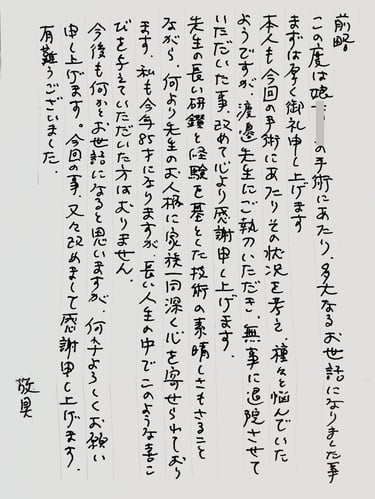 前略
この度は娘 の手術にあたり、多大なるお世話になりました事
まずは厚く御礼申し上げます
本人も今回の手術にあたりその状況を考え、種々と悩んでいた
ようですが、渡邊先生にご執刀いただき、無事に退院させて
いただいた事、改めて心より感謝申し上げます。
先生の長い研鑽と経験を基とした技術の素晴しさもさること
ながら、何より先生のお人格に家族一同深く心を寄せられており
ます。私も今年85才になりますが、長い人生の中でこのような喜こ
びを与えていただいた方はおりません。
今後も何かとお世話になると思いますが、何卒よろしくお願い
申し上げます。今回の事、又々改めまして感謝申し上げます。
有難うございました。
敬具